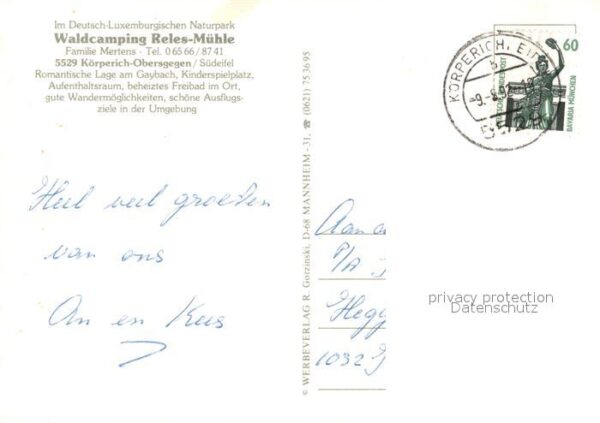 Im Deutsch-Luxemburgischen Naturpark
Waldcamping Reles-Mühle
Familie Mertens · Tel. 0 65 66 / 87 41
5529 Körperich-Obersgegen / Südeifel
Romantische Lage am Gaybach, Kinderspielplatz,
Aufenthaltsraum, beheiztes Freibad im Ort,
gute Wandermöglichkeiten, schöne Ausflugs-
ziele in der Umgebung
Heel veel groeten
van ons
An en Kees
© WERBEVERLAG R. Gorzinski, D-68 MANNHEIM-31, ☎ (0621) 75 36 95
KÖRPERICH, EIF
5521
60
DEUTSCHE BUNDESPOST
BAVARIA MÜNCHEN
Aan
P/A
Hegg
1032
privacy protection
Datenschutz